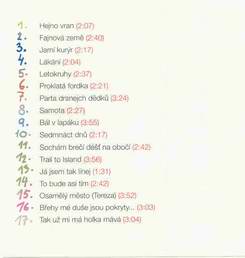 1. Hejno vran (2:07)
2. Fajnová země (2:40)
3. Jarní kurýr (2:17)
4. Lákání (2:04)
5. Letokruhy (2:37)
6. Proklatá fordka (2:21)
7. Parta drsnejch dědků (3:24)
8. Samota (2:27)
9. Bál v lapáku (3:55)
10. Sedmnáct dnů (2:17)
11. Sochám brečí déšť na obočí (2:42)
12. Trail to Island (3:56)
13. Já jsem tak línej (1:31)
14. To bude asi tím (2:42)
15. Osamělý město (Tereza) (3:52)
16. Břehy mé duše jsou pokryty... (3:03)
17. Tak už mi má holka mává (3:04)